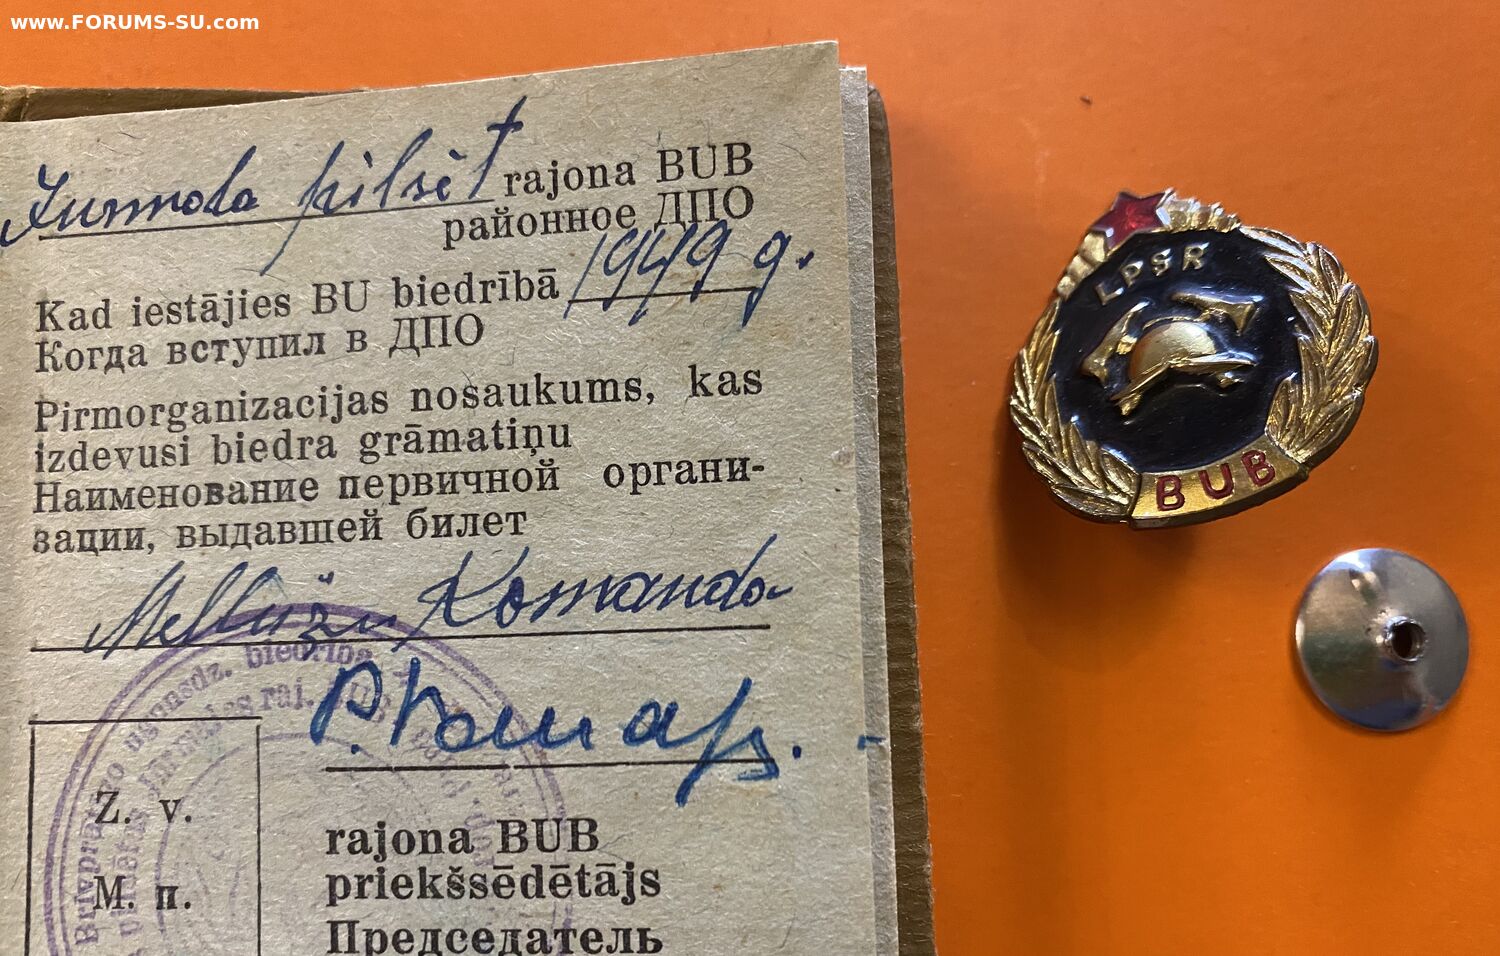 www.FORUMS-SU.com
Jurmala pilsēt rajona BUB
районное ДПО
Kad iestājies BU biedrībā 1949 g.
Когда вступил в ДПО
Pirmorganizacijas nosaukums, kas
izdevusi biedra grāmatiņu
Наименование первичной органи-
зации, выдавшей билет
Mellužu Komanda
Brīvprātīgo ugunsdz. biedrība
Z. v.
М. п.
rajona BUB
priekšsēdētājs
Председатель
LPSR
BUB